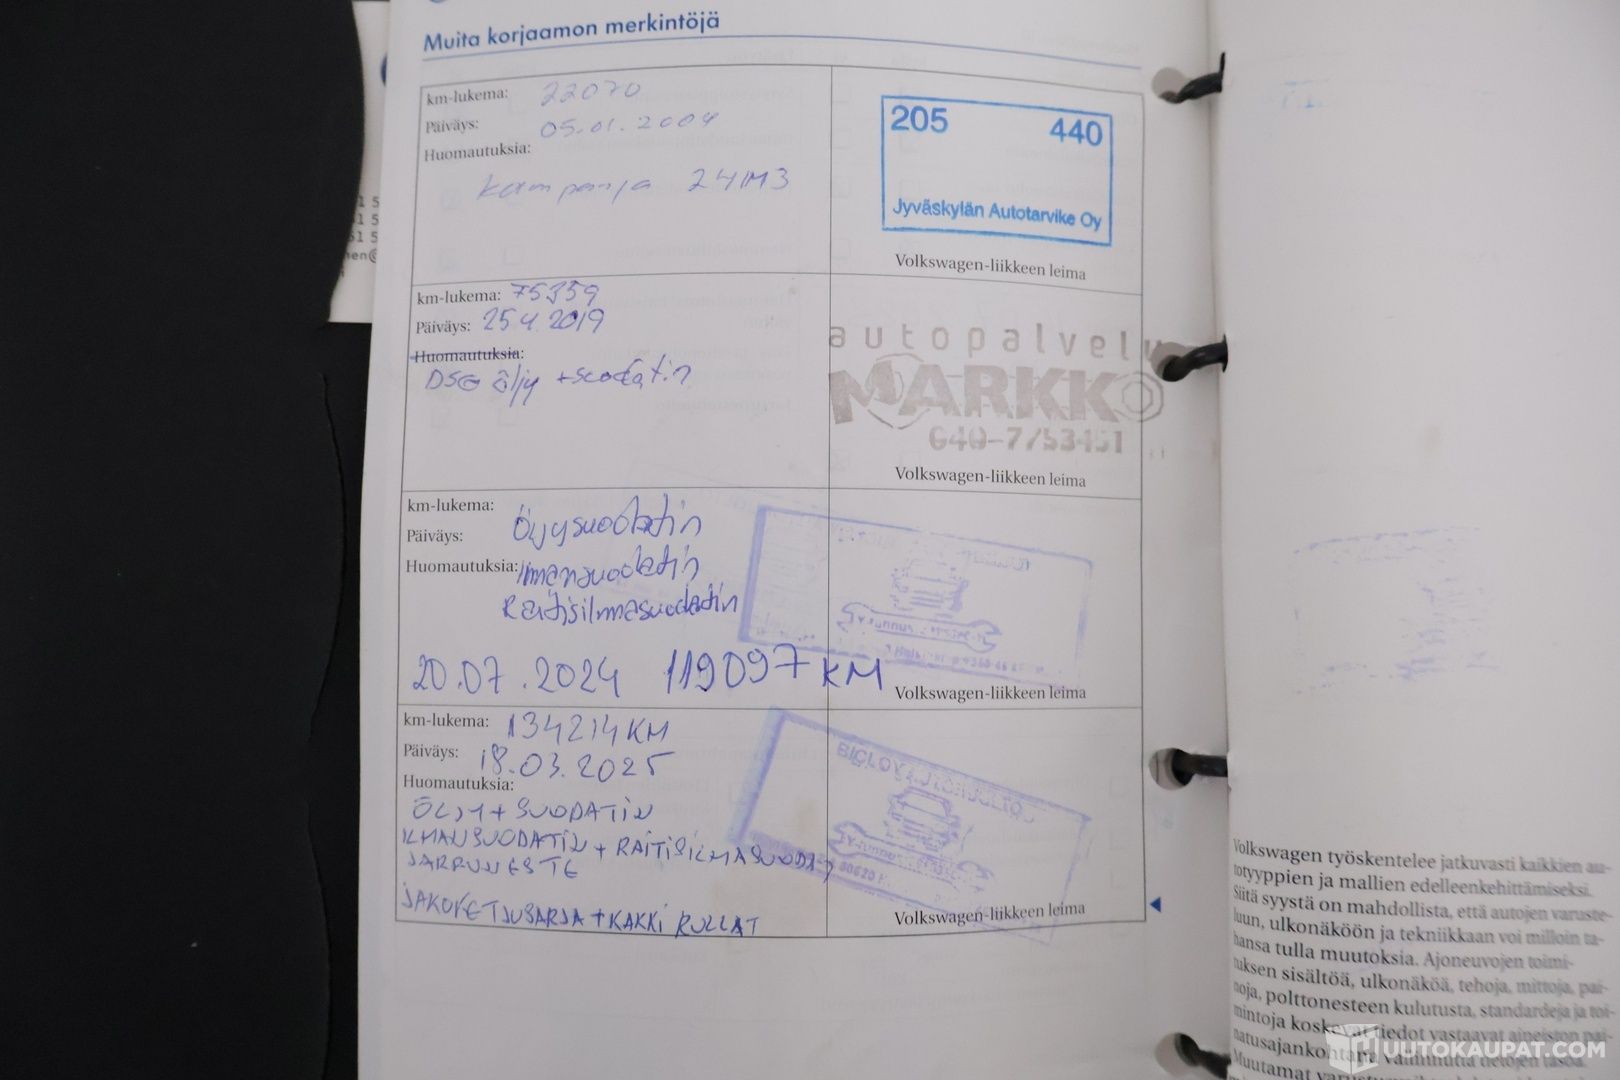 Muita korjaamon merkintöjä
km-lukema: 22070
Päiväys: 05.01.2004
Huomautuksia:
Kampanja 24M3
205 440
Jyväskylän Autotarvike Oy
Volkswagen-liikkeen leima
km-lukema: 75359
Päiväys: 25.4.2019
Huomautuksia:
DSG öljy + suodatin
autopalvelu
MARKKO
Volkswagen-liikkeen leima
km-lukema:
Päiväys: Öljysuodatin
Huomautuksia: Ilmansuodatin
Raitisilmasuodatin
20.07.2024 119097 KM
Volkswagen-liikkeen leima
km-lukema: 134214 KM
Päiväys: 18.03.2025
Huomautuksia:
ÖLJY + SUODATIN
ILMANSUODATIN + RAITISILMASUODA
JARRUNESTE
JAKOKETJUSARJA + KAKKI RULLAT
Volkswagen-liikkeen leima
Volkswagen työskentelee jatkuvasti kaikkien au-
totyyppien ja mallien edelleenkehittämiseksi.
Siitä syystä on mahdollista, että autojen varuste-
luun, ulkonäköön ja tekniikkaan voi milloin ta-
hansa tulla muutoksia. Ajoneuvojen toimi-
tuksen sisältöä, ulkonäköä, tehoja, mittoja, pai-
noja, polttonesteen kulutusta, standardeja ja toi-
mintoja koskevat tiedot vastaavat aineiston pai-
natusajankohtana
Muutamat
UUTOKAUPAT.COM